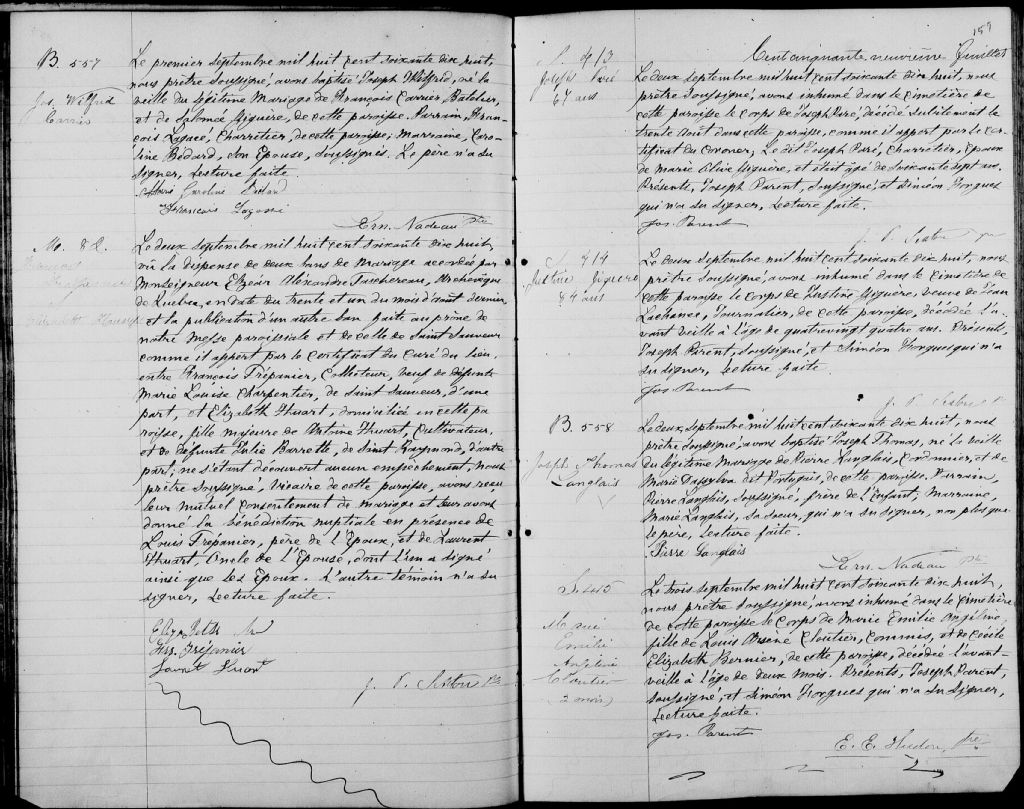 B. 557
Jos. Wilfrid
Carrier
Le premier septembre mil huit cent soixante dix huit,
nous prêtre soussigné, avons baptisé Joseph Wilfrid, né la
veille du légitime Mariage de François Carrier, Batelier,
et de Salomée Giguère, de cette paroisse. Parrain, Fran-
çois Lagacé, Charretier, de cette paroisse; Marraine, Caro-
line Bédard, son Epouse, soussignés. Le père n'a su
signer, Lecture faite.
Caroline Bédard
François
Ern. Nadeau Ptre
M. 82.
François
Elizabeth Huart
Le deux septembre mil huit cent soixante dix huit,
vu la dispense de deux bans de Mariage accordée par
Monseigneur Elzear Alexandre Taschereau, Archevêque
de Québec, en date du trente et un du mois d'août dernier,
et la publication d'un autre ban faite au prône de
notre Messe paroissiale et de celle de Saint Sauveur
comme il appert par le certificat du Curé du lieu,
entre François Trépanier, Collecteur, veuf de défunte
Marie Louise Charpentier, de Saint Sauveur, d'une
part, et Elizabeth Huart, domiciliée en cette pa
roisse, fille majeure de Antoine Huart, Cultivateur,
et de défunte Julie Barrette, de Saint Raymond, d'autre
part; ne s'étant découvert aucun empêchement, Nous
prêtre soussigné, Vicaire de cette paroisse, avons reçu
leur mutuel Consentement de Mariage et leur avons
donné la bénédiction nuptiale en présence de
Louis Trépanier, père de l'Epoux, et de Laurent
Huart, Oncle de l'Epouse, dont l'un a signé
ainsi que les Epoux. L'autre témoin n'a su
signer, Lecture faite.
Frs. Trépanier
Huart
J. P. Sexton Ptre
159
Cent cinquante neuvième Feuillet
S. 413
Joseph Paré
67 ans
Le deux septembre mil huit cent soixante dix huit, nous
prêtre soussigné, avons inhumé dans le cimetière de
cette paroisse le corps de Joseph Paré, décédé subitement le
trente Août dans cette paroisse, comme il appert par le cer-
tificat du Coroner; Le dit Joseph Paré, Charretier, Epoux
de Marie Olive Giguère, et était âgé de soixante sept ans.
Présents, Joseph Parent, soussigné, et Siméon Forgues
qui n'a su signer, Lecture faite.
Jos. Parent
J. P. Sexton ptre
S. 414
Justine Giguère
84 ans
Le deux septembre mil huit cent soixante dix huit, nous
prêtre soussigné, avons inhumé dans le cimetière de
cette paroisse le corps de Justine Giguère, veuve de Jean
Lachance, Journalier, de cette paroisse, décédée l'a
vant veille à l'âge de quatrevingt quatre ans. Présents,
Joseph Parent, soussigné, et Siméon Forgues qui n'a
su signer, Lecture faite.
Jos. Parent
J. P. Sexton Ptre
B. 558
Joseph Thomas
Langlais
Le deux septembre mil huit cent soixante dix huit, nous
prêtre soussigné, avons baptisé Joseph Thomas, né la veille
du légitime Mariage de Pierre Langlais, Cordonnier, et de
Marie Dassylva dit Portugais, de cette paroisse. Parrain,
Pierre Langlais, soussigné, frère de l'Enfant; Marraine,
Marie Langlais, sa soeur, qui n'a su signer, non plus que
le père, Lecture faite.
Pierre Langlais
Ern. Nadeau Ptre
S. 415
Marie
Emilie
Angéline
Cloutier
(2 mois)
Le trois septembre mil huit cent soixante dix huit,
nous prêtre soussigné, avons inhumé dans le cimetière
de cette paroisse le corps de Marie Emilie Angéline,
fille de Louis Arsène Cloutier, Commis, et de Cécile
Elizabeth Bernier, de cette paroisse, décédée l'avant-
veille à l'âge de deux mois. Présents, Joseph Parent,
soussigné, et Siméon Forgues qui n'a su signer,
Lecture faite.
Jos. Parent
E. E. Hudon, Ptre